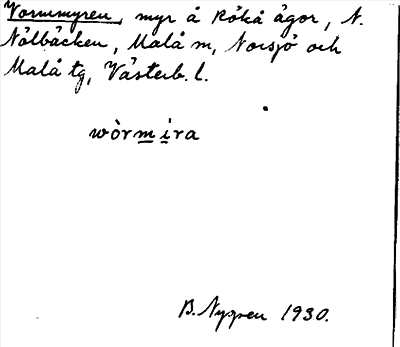 Vormmyren, myr å Rökå ägor, N.
Nölbäcken, Malå m, Norsjö och
Malå tg, Västerb. l.
wòrmira
B. Nygren 1930.